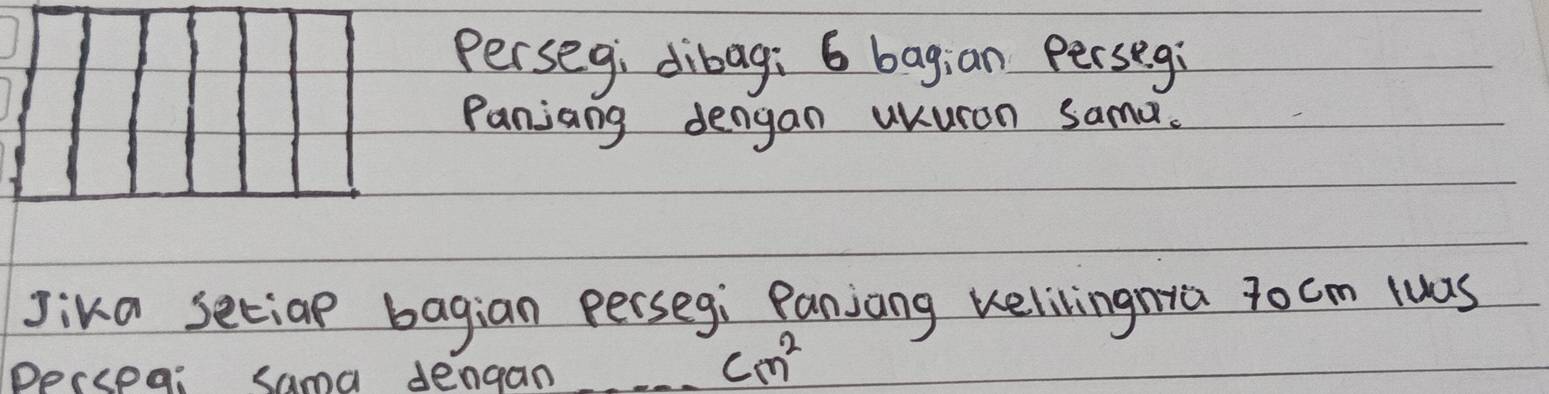 Persegi dibagi 6 bagian Persegi
Panjang dengan ukuran sama.
Jika setiap bagian persegi Panjang kelilingnya 70 cm luas
persegi sama dengan ..... cm²